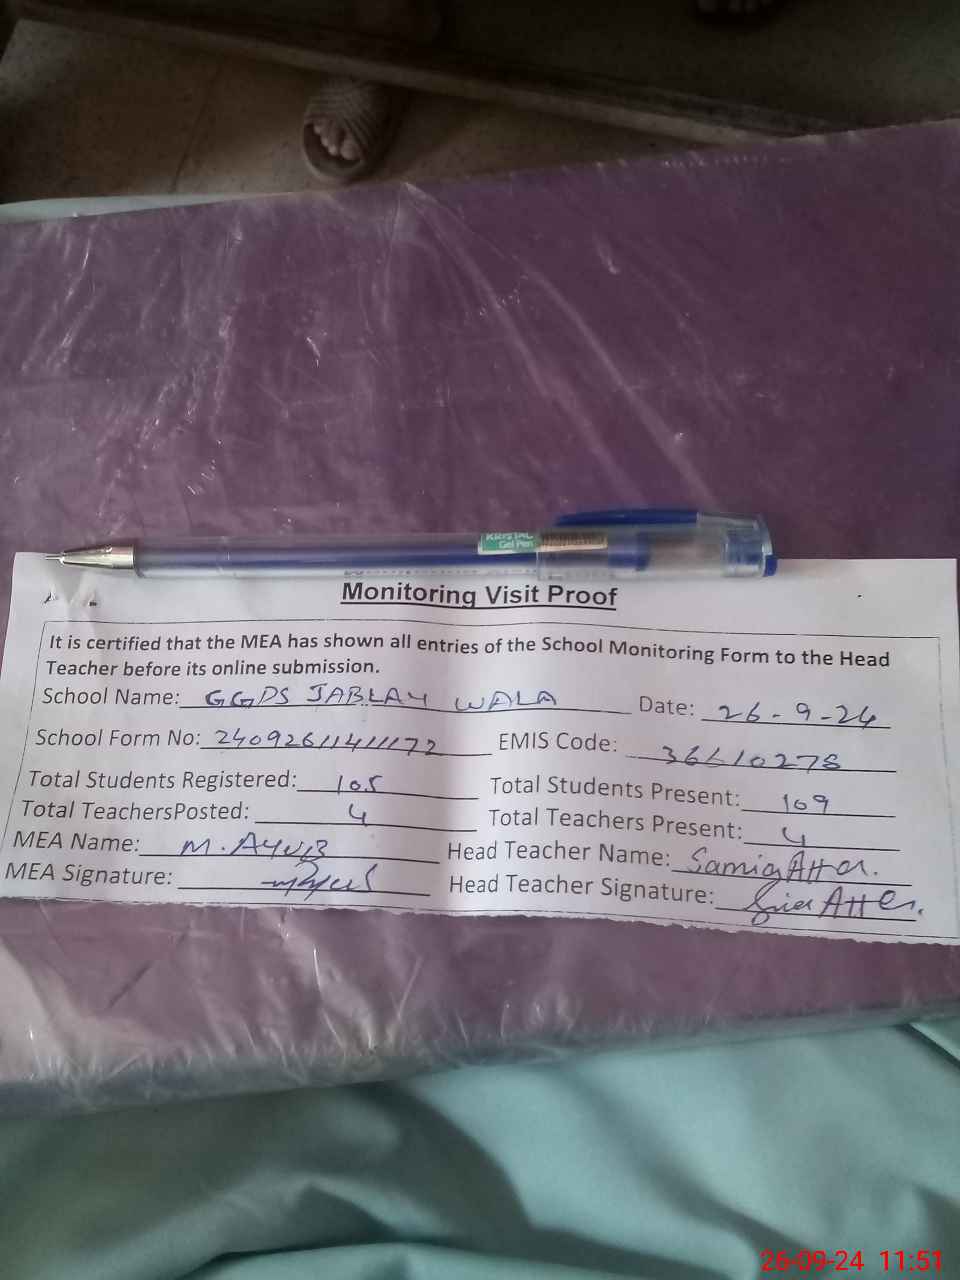 KRISTAL
Gel Pen
Monitoring Visit Proof
It is certified that the MEA has shown all entries of the School Monitoring Form to the Head
Teacher before its online submission.
School Name: GGPS JABLAY WALA Date: 26-9-24
School Form No: 24092611411172 EMIS Code: 36610278
Total Students Registered: 105 Total Students Present: 109
Total TeachersPosted: 4 Total Teachers Present: 4
MEA Name: M. AYUB Head Teacher Name: Samia
MEA Signature: Head Teacher Signature:
26-09-24 11:51